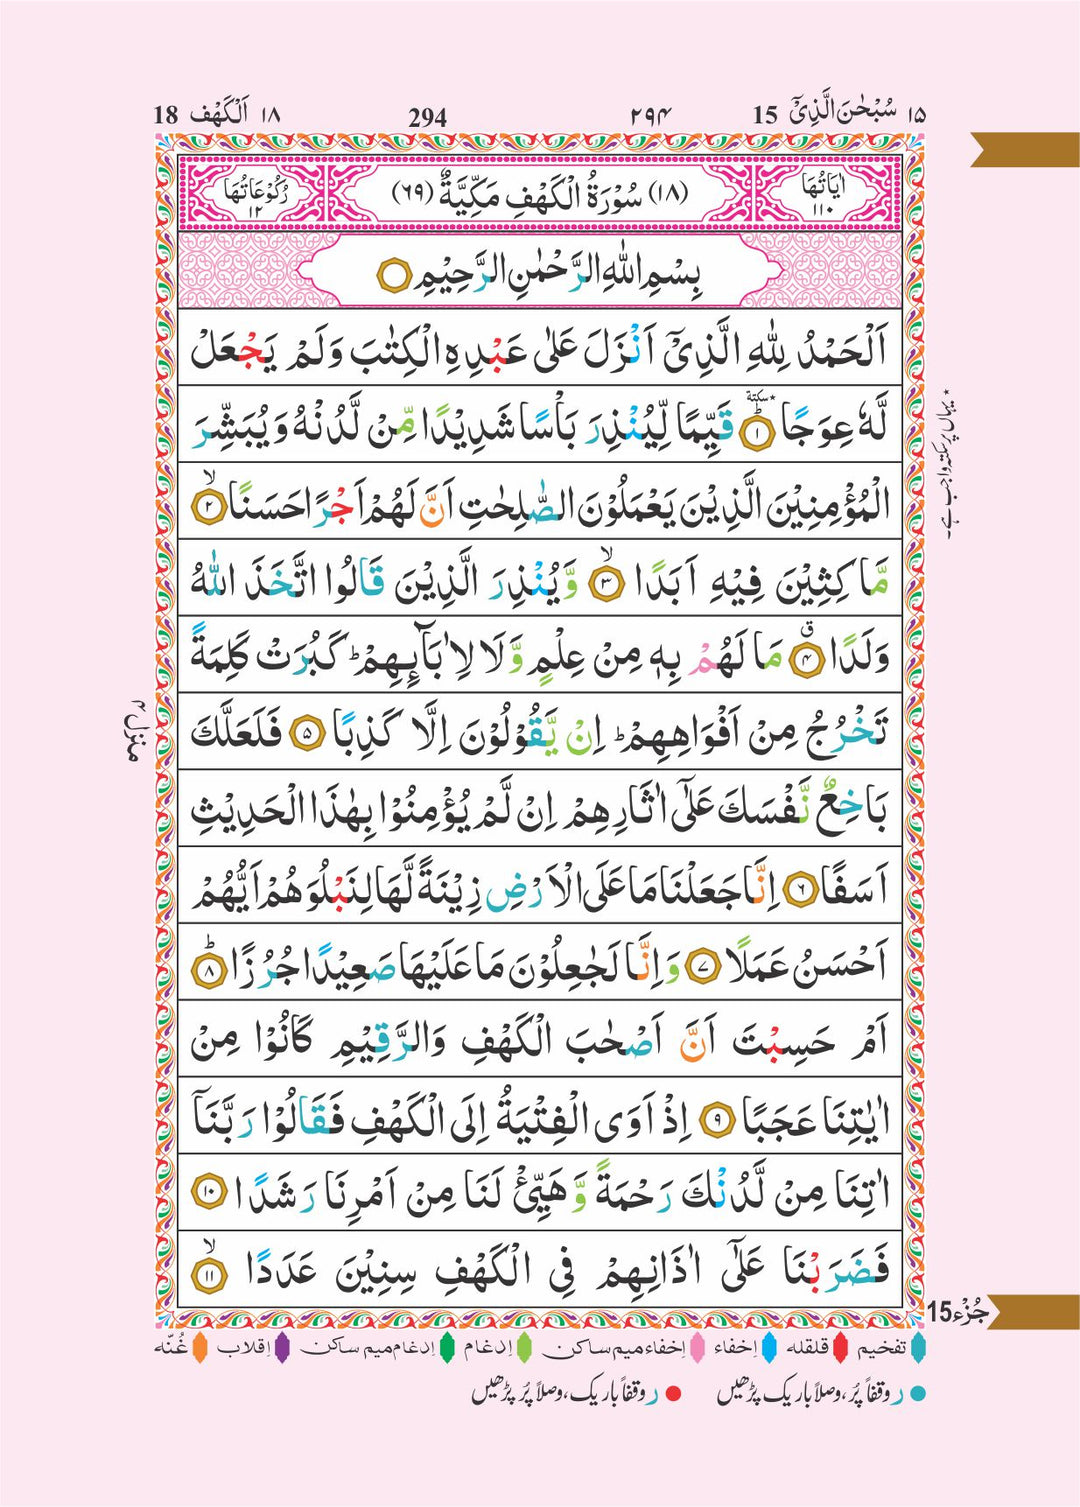 ۱۵ سُبْحٰنَ الَّذِیْۤ 15 ۲۹۴ 294 ۱۸ اَلْكَهْف 18
اٰیَاتُهَا ۱۱۰ (۱۸) سُوْرَةُ الْكَهْفِ مَكِّیَّةٌ (۶۹) رُكُوْعَاتُهَا ۱۲
بِسْمِ اللّٰهِ الرَّحْمٰنِ الرَّحِیْمِ
اَلْحَمْدُ لِلّٰهِ الَّذِیْۤ اَنْزَلَ عَلٰی عَبْدِهِ الْكِتٰبَ وَلَمْ یَجْعَلْ
لَّهٗ عِوَجًا ؕ سكتة ۱ قَیِّمًا لِّیُنْذِرَ بَاْسًا شَدِیْدًا مِّنْ لَّدُنْهُ وَیُبَشِّرَ
الْمُؤْمِنِیْنَ الَّذِیْنَ یَعْمَلُوْنَ الصّٰلِحٰتِ اَنَّ لَهُمْ اَجْرًا حَسَنًا ۙ ۲
مَّاكِثِیْنَ فِیْهِ اَبَدًا ۙ ۳ وَّیُنْذِرَ الَّذِیْنَ قَالُوا اتَّخَذَ اللّٰهُ
وَلَدًا ۗ ۴ مَا لَهُمْ بِهٖ مِنْ عِلْمٍ وَّلَا لِاٰبَآىِٕهِمْ ؕ كَبُرَتْ كَلِمَةً
تَخْرُجُ مِنْ اَفْوَاهِهِمْ ؕ اِنْ یَّقُوْلُوْنَ اِلَّا كَذِبًا ۵ فَلَعَلَّكَ
بَاخِعٌ نَّفْسَكَ عَلٰۤی اٰثَارِهِمْ اِنْ لَّمْ یُؤْمِنُوْا بِهٰذَا الْحَدِیْثِ
اَسَفًا ۶ اِنَّا جَعَلْنَا مَا عَلَی الْاَرْضِ زِیْنَةً لَّهَا لِنَبْلُوَهُمْ اَیُّهُمْ
اَحْسَنُ عَمَلًا ۷ وَاِنَّا لَجٰعِلُوْنَ مَا عَلَیْهَا صَعِیْدًا جُرُزًا ؕ ۸
اَمْ حَسِبْتَ اَنَّ اَصْحٰبَ الْكَهْفِ وَالرَّقِیْمِ كَانُوْا مِنْ
اٰیٰتِنَا عَجَبًا ۹ اِذْ اَوَی الْفِتْیَةُ اِلَی الْكَهْفِ فَقَالُوْا رَبَّنَاۤ
اٰتِنَا مِنْ لَّدُنْكَ رَحْمَةً وَّهَیِّئْ لَنَا مِنْ اَمْرِنَا رَشَدًا ۱۰
فَضَرَبْنَا عَلٰۤی اٰذَانِهِمْ فِی الْكَهْفِ سِنِیْنَ عَدَدًا ۙ ۱۱
* یہاں پر سکتہ واجب ہے۔
منزل ۴
جُزْء 15
تفخیم قلقله اِخفاء اِخفاء میم ساکن اِدغام اِدغام میم ساکن اِقلاب غُنّه
ر وقفاً پُر، وصلاً باریک پڑھیں ر وقفاً باریک، وصلاً پُر پڑھیں